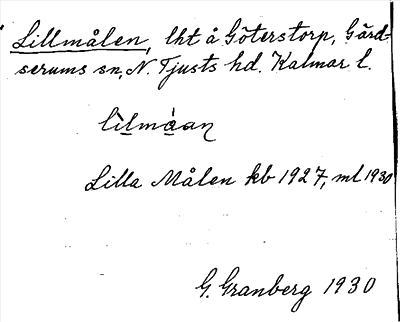 Lillmålen, lht å Göterstorp, Gärd-
serums sn, N. Tjusts hd. Kalmar l.
lilmåan
Lilla Målen kb 1927, ml 1930
G. Granberg 1930